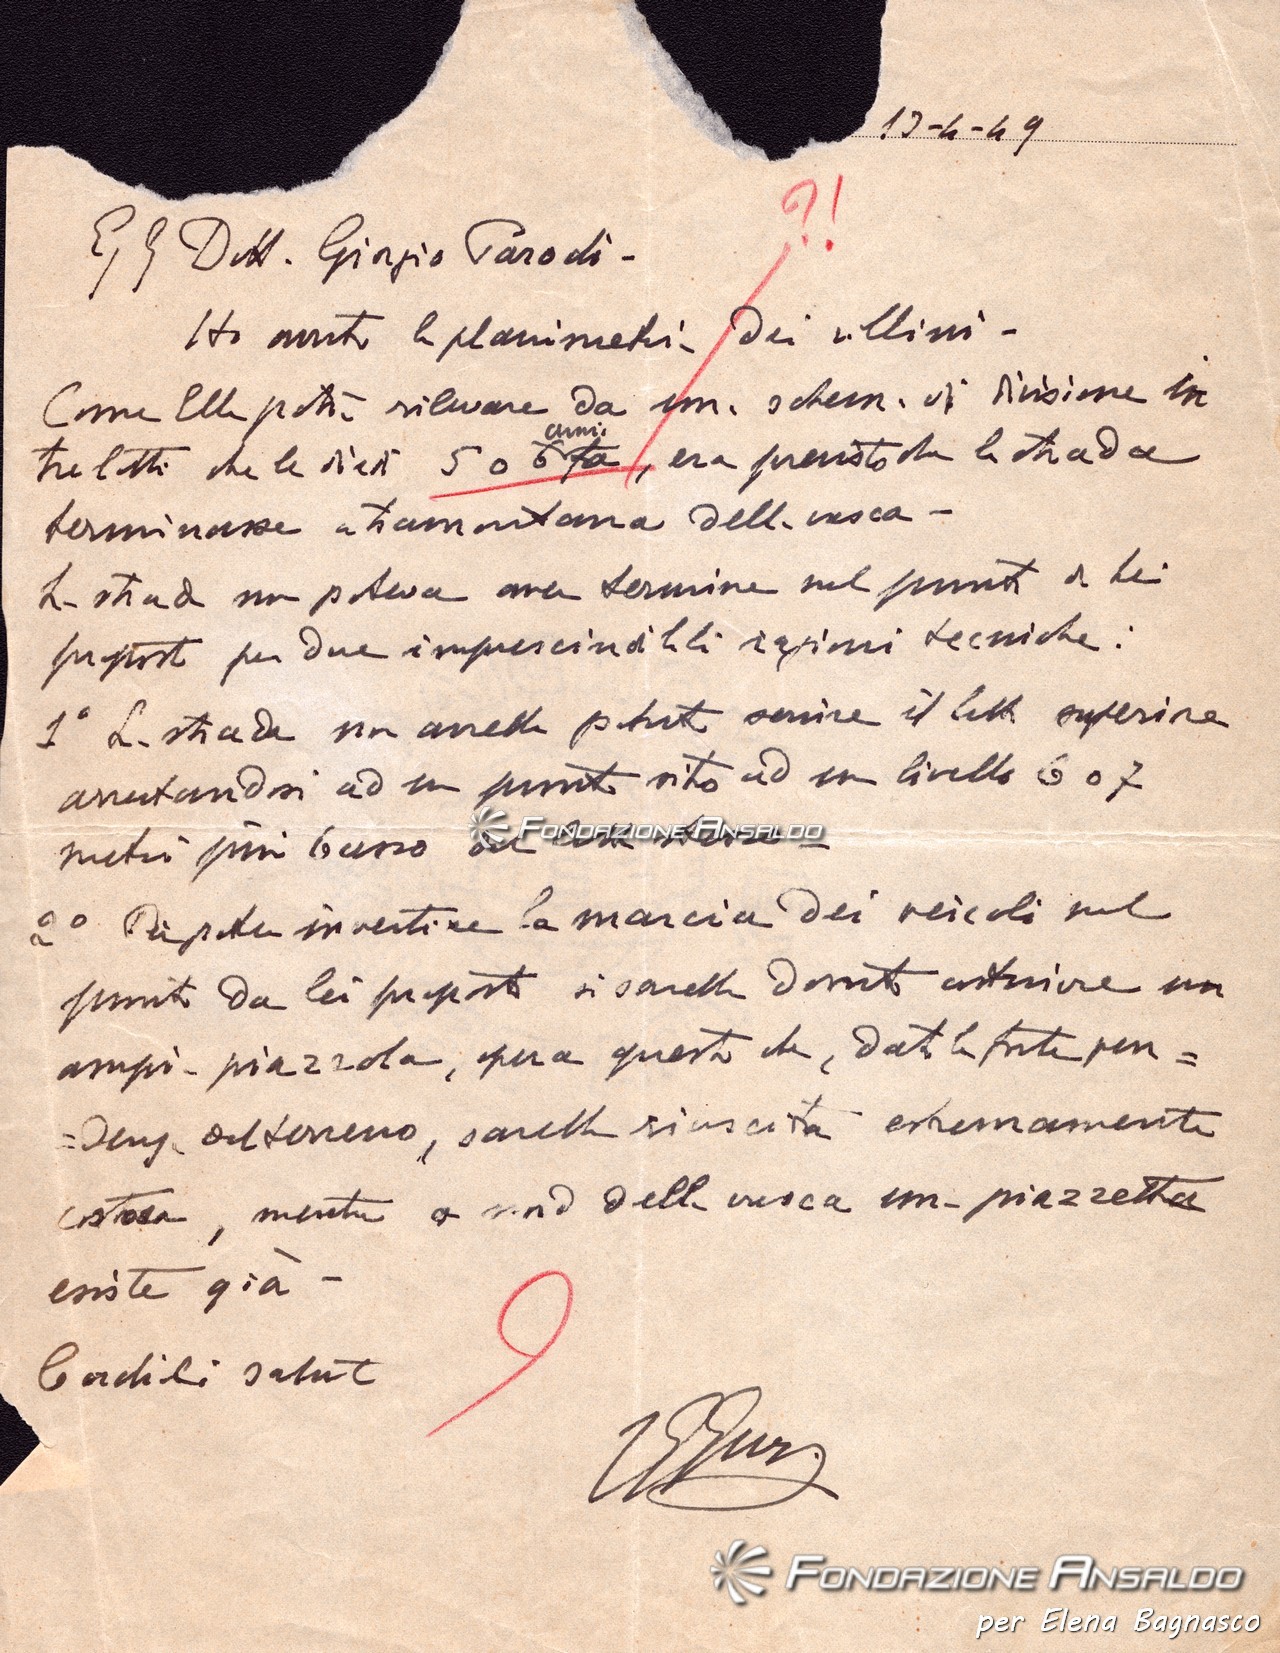 13-4-49
?!
Eg. Dott. Giorgio Parodi -
Ho avuto la planimetria dei villini -
Come Ella potrà rilevare da una schema di divisione in
anni
tre lotti che le diedi 5 o 6 fa, era previsto che la strada
terminasse a tramontana della vasca -
La strada non poteva aver termine nel punto da Lei
proposto per due imprescindibili ragioni tecniche:
1° La strada non avrebbe potuto servire il lotto superiore
arrestandosi ad un punto sito ad un livello 6 o 7
metri più basso del lotto stesso -
2° Per poter invertire la marcia dei veicoli nel
punto da lei proposto si sarebbe dovuto costruire un
ampia piazzola, opera questa che, data la forte pen=
=denza del terreno, sarebbe riuscita estremamente
costosa, mentre a nord della vasca una piazzetta
esiste già -
Cordiali saluti
FONDAZIONE ANSALDO
FONDAZIONE ANSALDO
per Elena Bagnasco